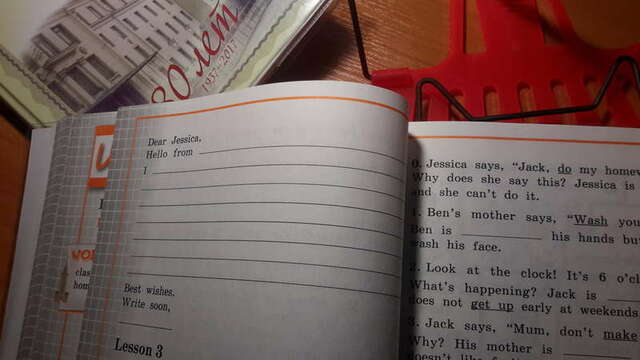 80 лет
1937-2017
Dear Jessica,
Hello from
I
Best wishes,
Write soon,
Lesson 3
clas
hom
0. Jessica says, "Jack, do my homew
Why does she say this? Jessica is
and she can't do it.
1. Ben's mother says, "Wash you
Ben is his hands bu
wash his face.
2. Look at the clock! It's 6 o'c
What's happening? Jack is
does not get up early at weekends
3. Jack says, "Mum, don't make
Why? His mother is
doesn't like f